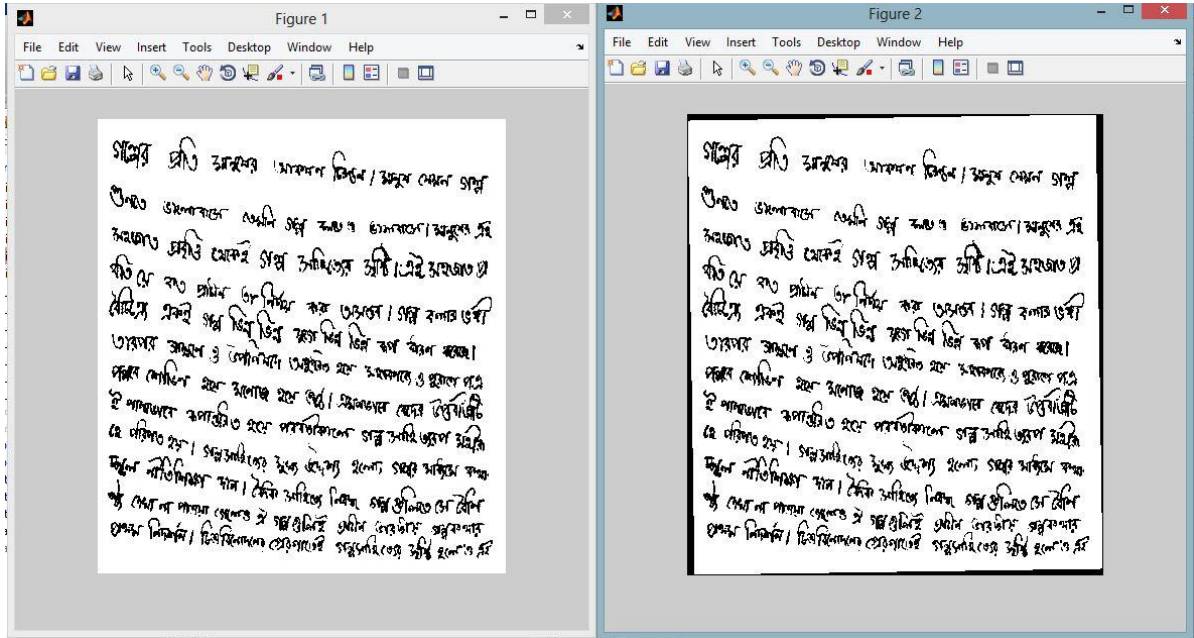 Figure 1
File Edit View Insert Tools Desktop Window Help
গল্পের প্রতি মানুষের আকর্ষণ চিরন্তন। মানুষ যেমন গল্প
শুনতে ভালোবাসে তেমনি গল্প বলতে ও ভালবাসে। মানুষের এই
সহজাত প্রবৃত্তি থেকেই গল্প সাহিত্যের সৃষ্টি। এই সহজাত প্র
বৃত্তি যে কত প্রাচীন তা নির্ণয় করা অসম্ভব। গল্প বলার ভঙ্গী
বৈচিত্র্যে একই গল্প ভিন্ন ভিন্ন যুগে ভিন্ন ভিন্ন রূপ ধারন করেছে।
তারপর ব্রাহ্মণে ও উপনিষদে হয়ে মহাভারতে ও পুরাণে
হয়ে হয়ে
ই রূপান্তরিত হয়ে পরবর্তীকালে গল্প
হে পরিণত হয়। গল্পসাহিত্যের মূখ্য উদ্দেশ্য হলো, গল্পের মাধ্যমে
নীতিশিক্ষা দান। বৈদিক সাহিত্যে গল্প গুলিতে সে বৈশি
ষ্ট্য দেখা না পাওয়া গেলেও ঐ গল্পগুলিই প্রাচীন ভারতীয় গল্পকথার
প্রথম নিদর্শন। চিত্তবিনোদনের প্রেরণাতেই গল্পসাহিত্যের সৃষ্টি হলেও এই
Figure 2
File Edit View Insert Tools Desktop Window Help
গল্পের প্রতি মানুষের আকর্ষণ চিরন্তন। মানুষ যেমন গল্প
শুনতে ভালোবাসে তেমনি গল্প বলতে ও ভালবাসে। মানুষের এই
সহজাত প্রবৃত্তি থেকেই গল্প সাহিত্যের সৃষ্টি। এই সহজাত প্র
বৃত্তি যে কত প্রাচীন তা নির্ণয় করা অসম্ভব। গল্প বলার ভঙ্গী
বৈচিত্র্যে একই গল্প ভিন্ন ভিন্ন যুগে ভিন্ন ভিন্ন রূপ ধারন করেছে।
তারপর ব্রাহ্মণে ও উপনিষদে হয়ে মহাভারতে ও পুরাণে
হয়ে হয়ে
ই রূপান্তরিত হয়ে পরবর্তীকালে গল্প
হে পরিণত হয়। গল্পসাহিত্যের মূখ্য উদ্দেশ্য হলো, গল্পের মাধ্যমে
নীতিশিক্ষা দান। বৈদিক সাহিত্যে গল্প গুলিতে সে বৈশি
ষ্ট্য দেখা না পাওয়া গেলেও ঐ গল্পগুলিই প্রাচীন ভারতীয় গল্পকথার
প্রথম নিদর্শন। চিত্তবিনোদনের প্রেরণাতেই গল্পসাহিত্যের সৃষ্টি হলেও এই